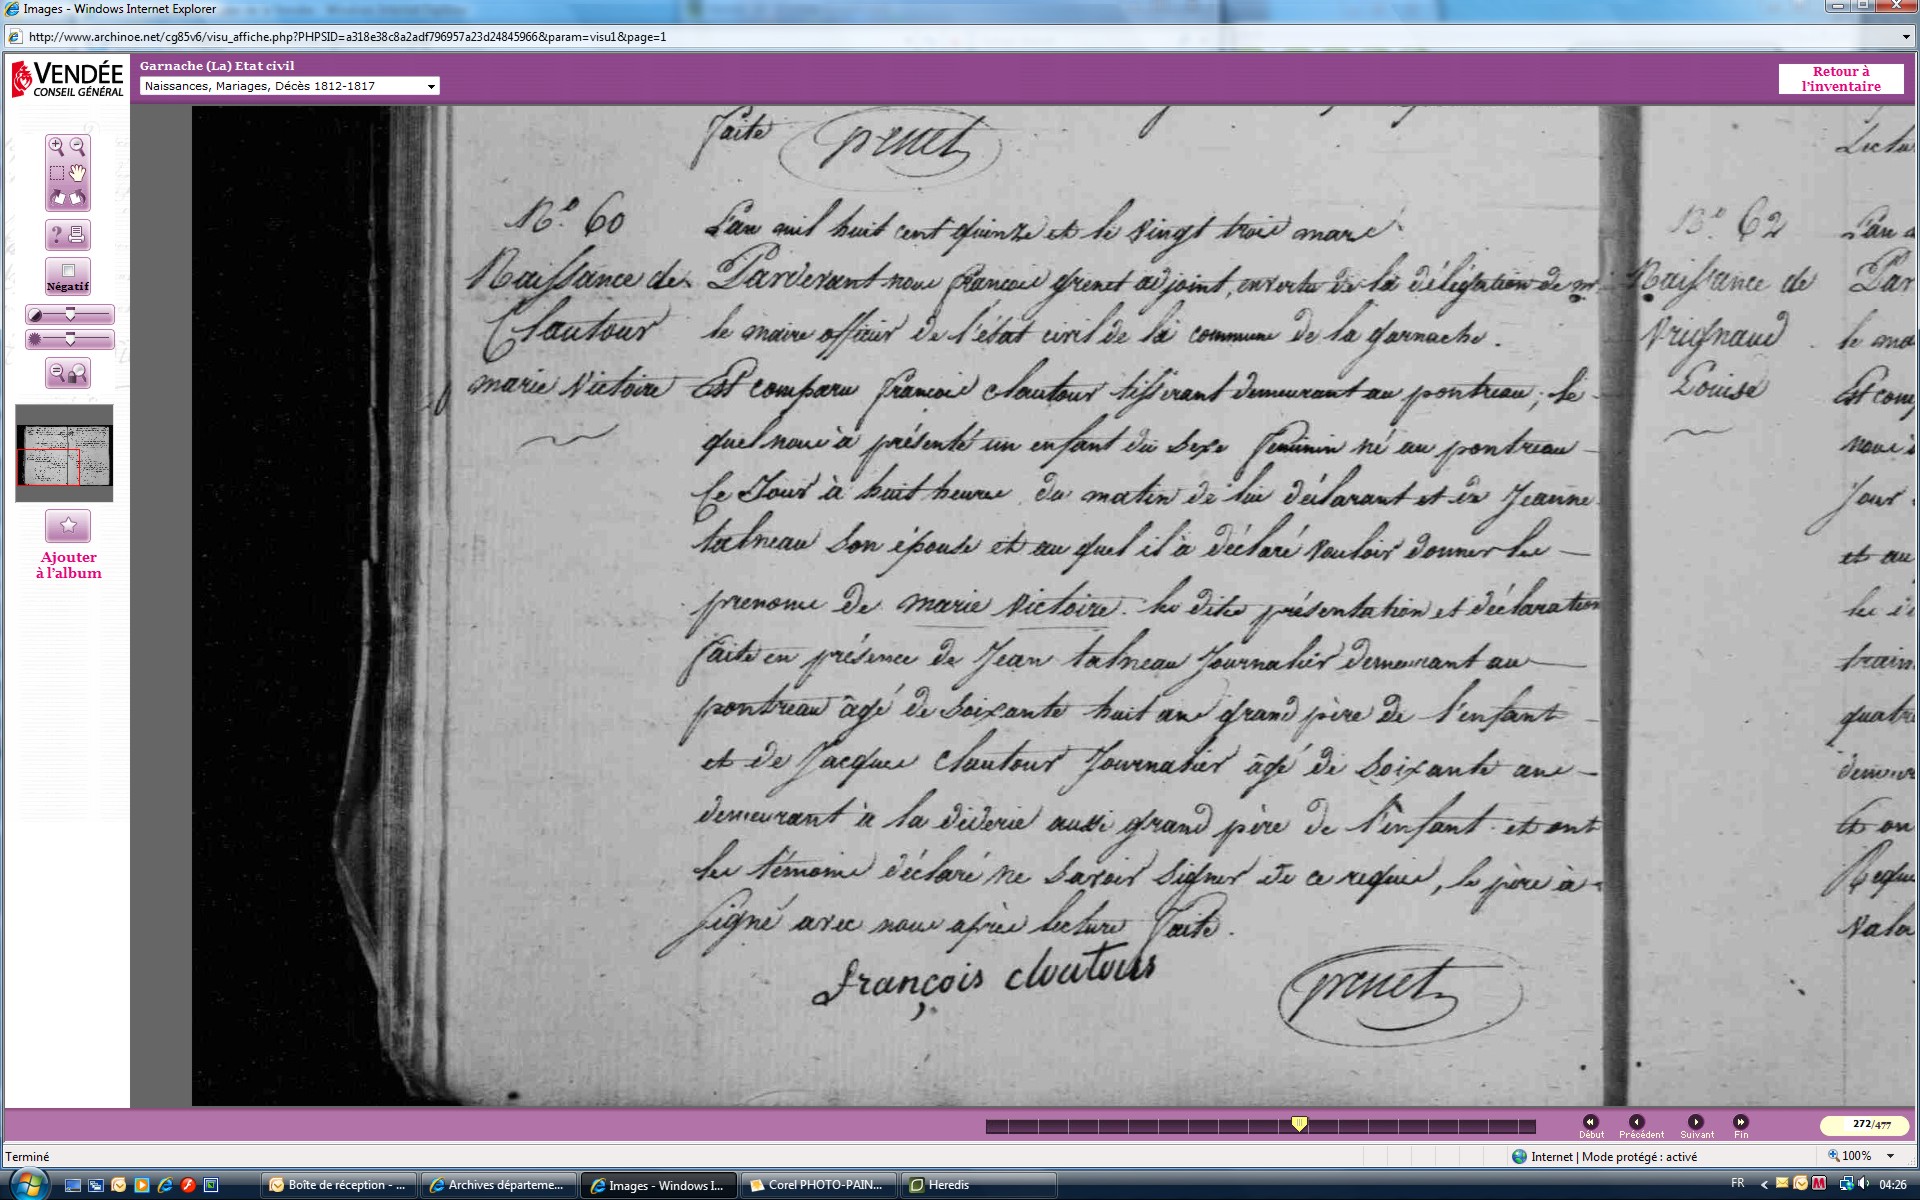 Images - Windows Internet Explorer
http://www.archinoe.net/cg85v6/visu_affiche.php?PHPSID=a318e38c8a2adf796957a23d24845966&param=visu1&page=1
VENDÉE
CONSEIL GÉNÉRAL
Garnache (La) Etat civil
Naissances, Mariages, Décès 1812-1817
Retour à
l'inventaire
Négatif
Ajouter
à l'album
faite grenet
N.o 60
Naissance de
Clautour
marie Victoire
L'an mil huit cent quinze et le vingt trois mars
Pardevant nous françois grenet adjoint, en vertu de la délégation de mr
le maire officier de l'état civil de la commune de la garnache.
Est comparu françois clautour tisserant demeurant au pontreau; le
quel nous à présenté un enfant du sexe feminin né au pontreau
ce Jour à huit heures du matin de lui déclarant et de Jeanne
talneau son épouse et au quel il à déclaré vouloir donner les
prenoms de marie victoire. les dites présentation et déclaration
faite en présence de Jean talneau Journalier demeurant au
pontreau âgé de soixante huit ans grand père de l'enfant
et de Jacques clautour Journalier âgé de soixante ans
demeurant à la diverie aussi grand père de l'enfant et ont
les témoins déclaré ne savoir signer de ce requis, le père à
signé avec nous après lecture faite.
françois cloutour grenet
N.o 62
Naissance de
Vrignaud
Louise
Lectu
L'an
Par
le ma
Est comp
nous
Jour
et au
les
quatre
demeur
Et on
Requi
272/477
Début
Précédent
Suivant
Fin
Terminé
Internet | Mode protégé : activé
100%
Boîte de réception - ...
Archives départeme...
Images - Windows I...
Corel PHOTO-PAIN...
Heredis
FR
04:26